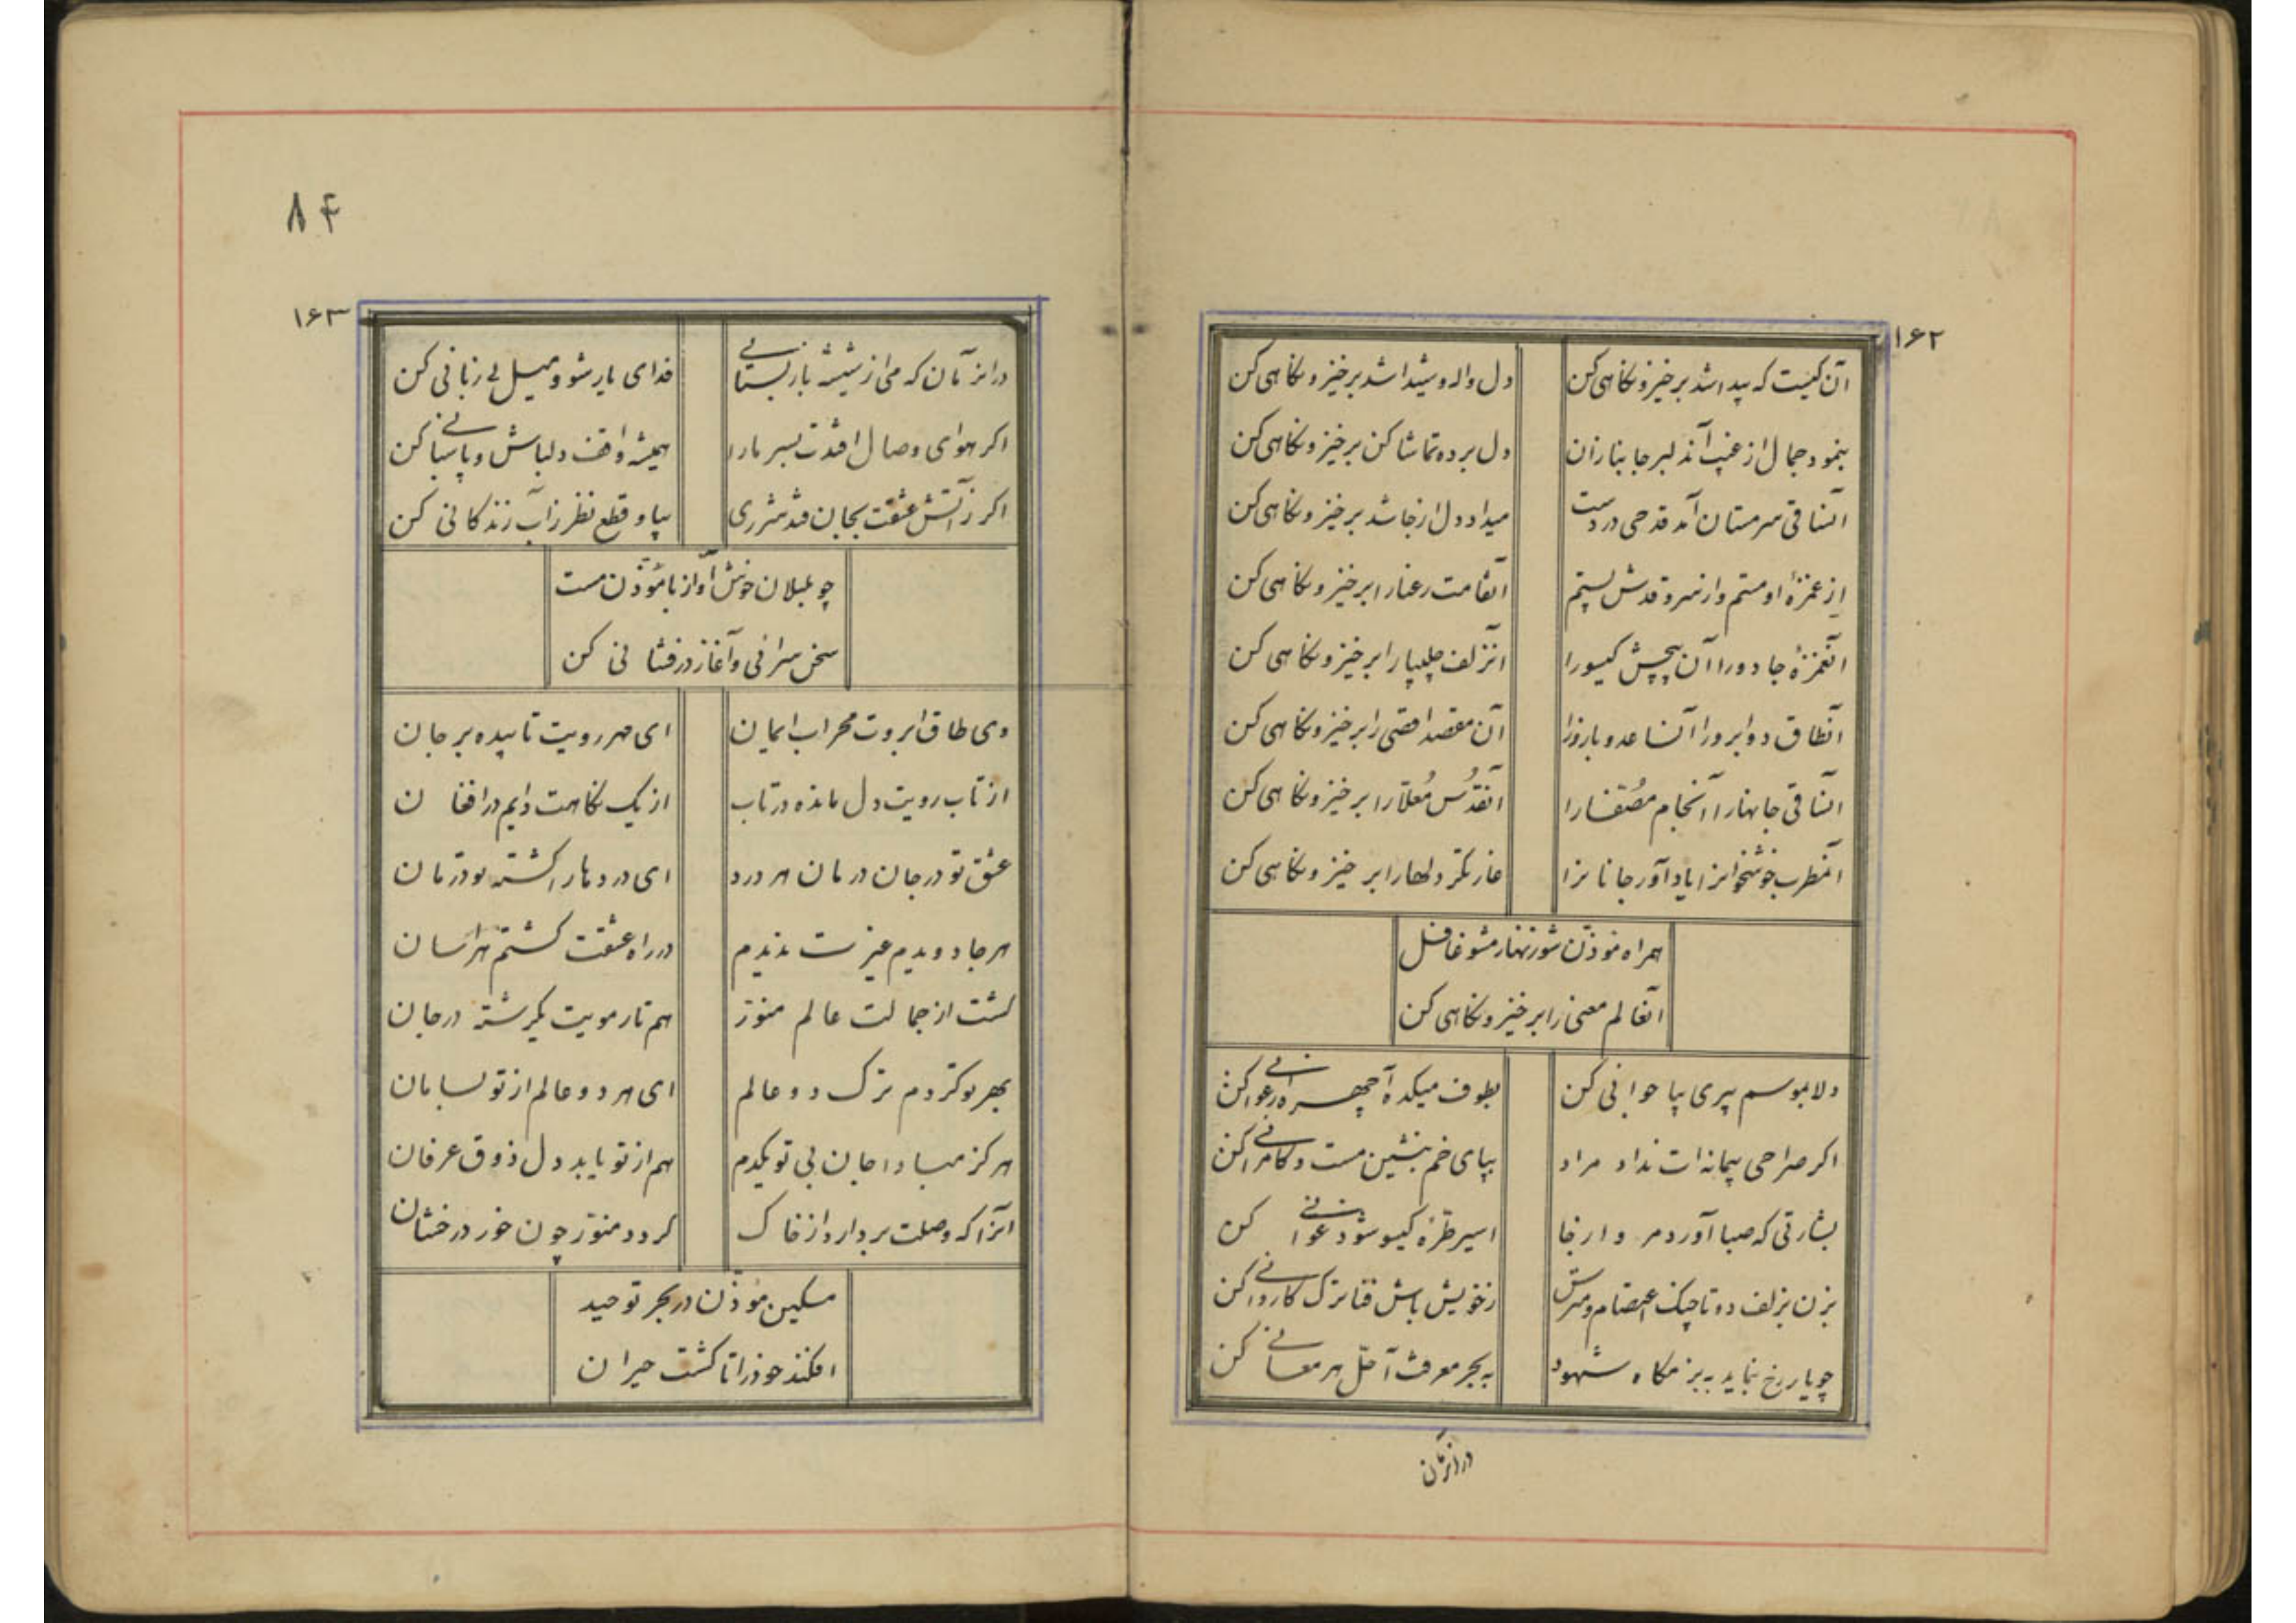 ۱۶۲
آن کیست که پیدا شد برخیز و نکاهی کن
دل واله و شیدا شد برخیز و نکاهی کن
بنمود جمال از غیب آندلبر جانبازان
دل برده تماشا کن برخیز و نکاهی کن
آنساقی سرمستان آمد قدحی در دست
میداد دل از جا شد برخیز و نکاهی کن
از غمزهٔ او مستم وز سرو قدش پستم
آنقامت رعنا را برخیز و نکاهی کن
آنغمزهٔ جادو را آن پیچش کیسو را
آنزلف چلیپا را برخیز و نکاهی کن
آنطاق دو ابرو را آنساعد و بازو را
آن مقصد اقصی را برخیز و نکاهی کن
آنساقی جانها را آنجام مصفا را
آنقدس معلا را برخیز و نکاهی کن
آنمطرب خوشخوانرا یاد آور جانانرا
غارتکر دلها را برخیز و نکاهی کن
همراه مؤذن شو زنهار مشو غافل
آنعالم معنی را برخیز و نکاهی کن
دلا بموسم پیری بیا جوانی کن
بطوف میکده آ چهره ارغوانی کن
اکر صراحی پیمانه ات نداد مراد
بپای خم بنشین مست و کامرانی کن
بشارتی که صبا آورد مر
اسیر طرّه کیسو شو
بزن بزلف دو تا چنک اعتصام و مترس
ز خویش باش فنا ترک کاردانی کن
چو یار رخ بنماید ببزمکاه شهود
به بحر معرفت آ حل هر معانی کن
درانزمان
۸۴
۱۶۳
درانزمان که می از شیشه باز بستانی
فدای یار شو و میل بی زبانی کن
اکر هوای وصال افتدت بسر مارا
همیشه واقف دلباش و پاسبانی کن
اکر ز آتش عشقت بجان فتد شرری
بیا و قطع نظر ز آب زندکانی کن
چو بلبلان خوش آواز با مؤذن مست
سخن سرائی و آغاز درفشانی کن
وی طاق ابروت محراب ایمان
ای مهر رویت تابیده بر جان
از تاب رویت دل مانده در تاب
از یک نکاهت دایم در افغان
عشق تو در جان درمان هر درد
ای درد ما را کشته تو درمان
هر جا دویدم غیرت ندیدم
در راه عشقت کشتم هراسان
کشت از جمالت عالم منور
هم تار مویت یکرشته در جان
بهر تو کردم ترک دو عالم
ای هر دو عالم از تو بسامان
هرکز مبادا جان بی تو یکدم
هم از تو یابد دل ذوق عرفان
آنرا که وصلت بردارد از خاک
کردد منور چون خور درخشان
مسکین مؤذن در بحر توحید
افکند خود را تا کشت حیران